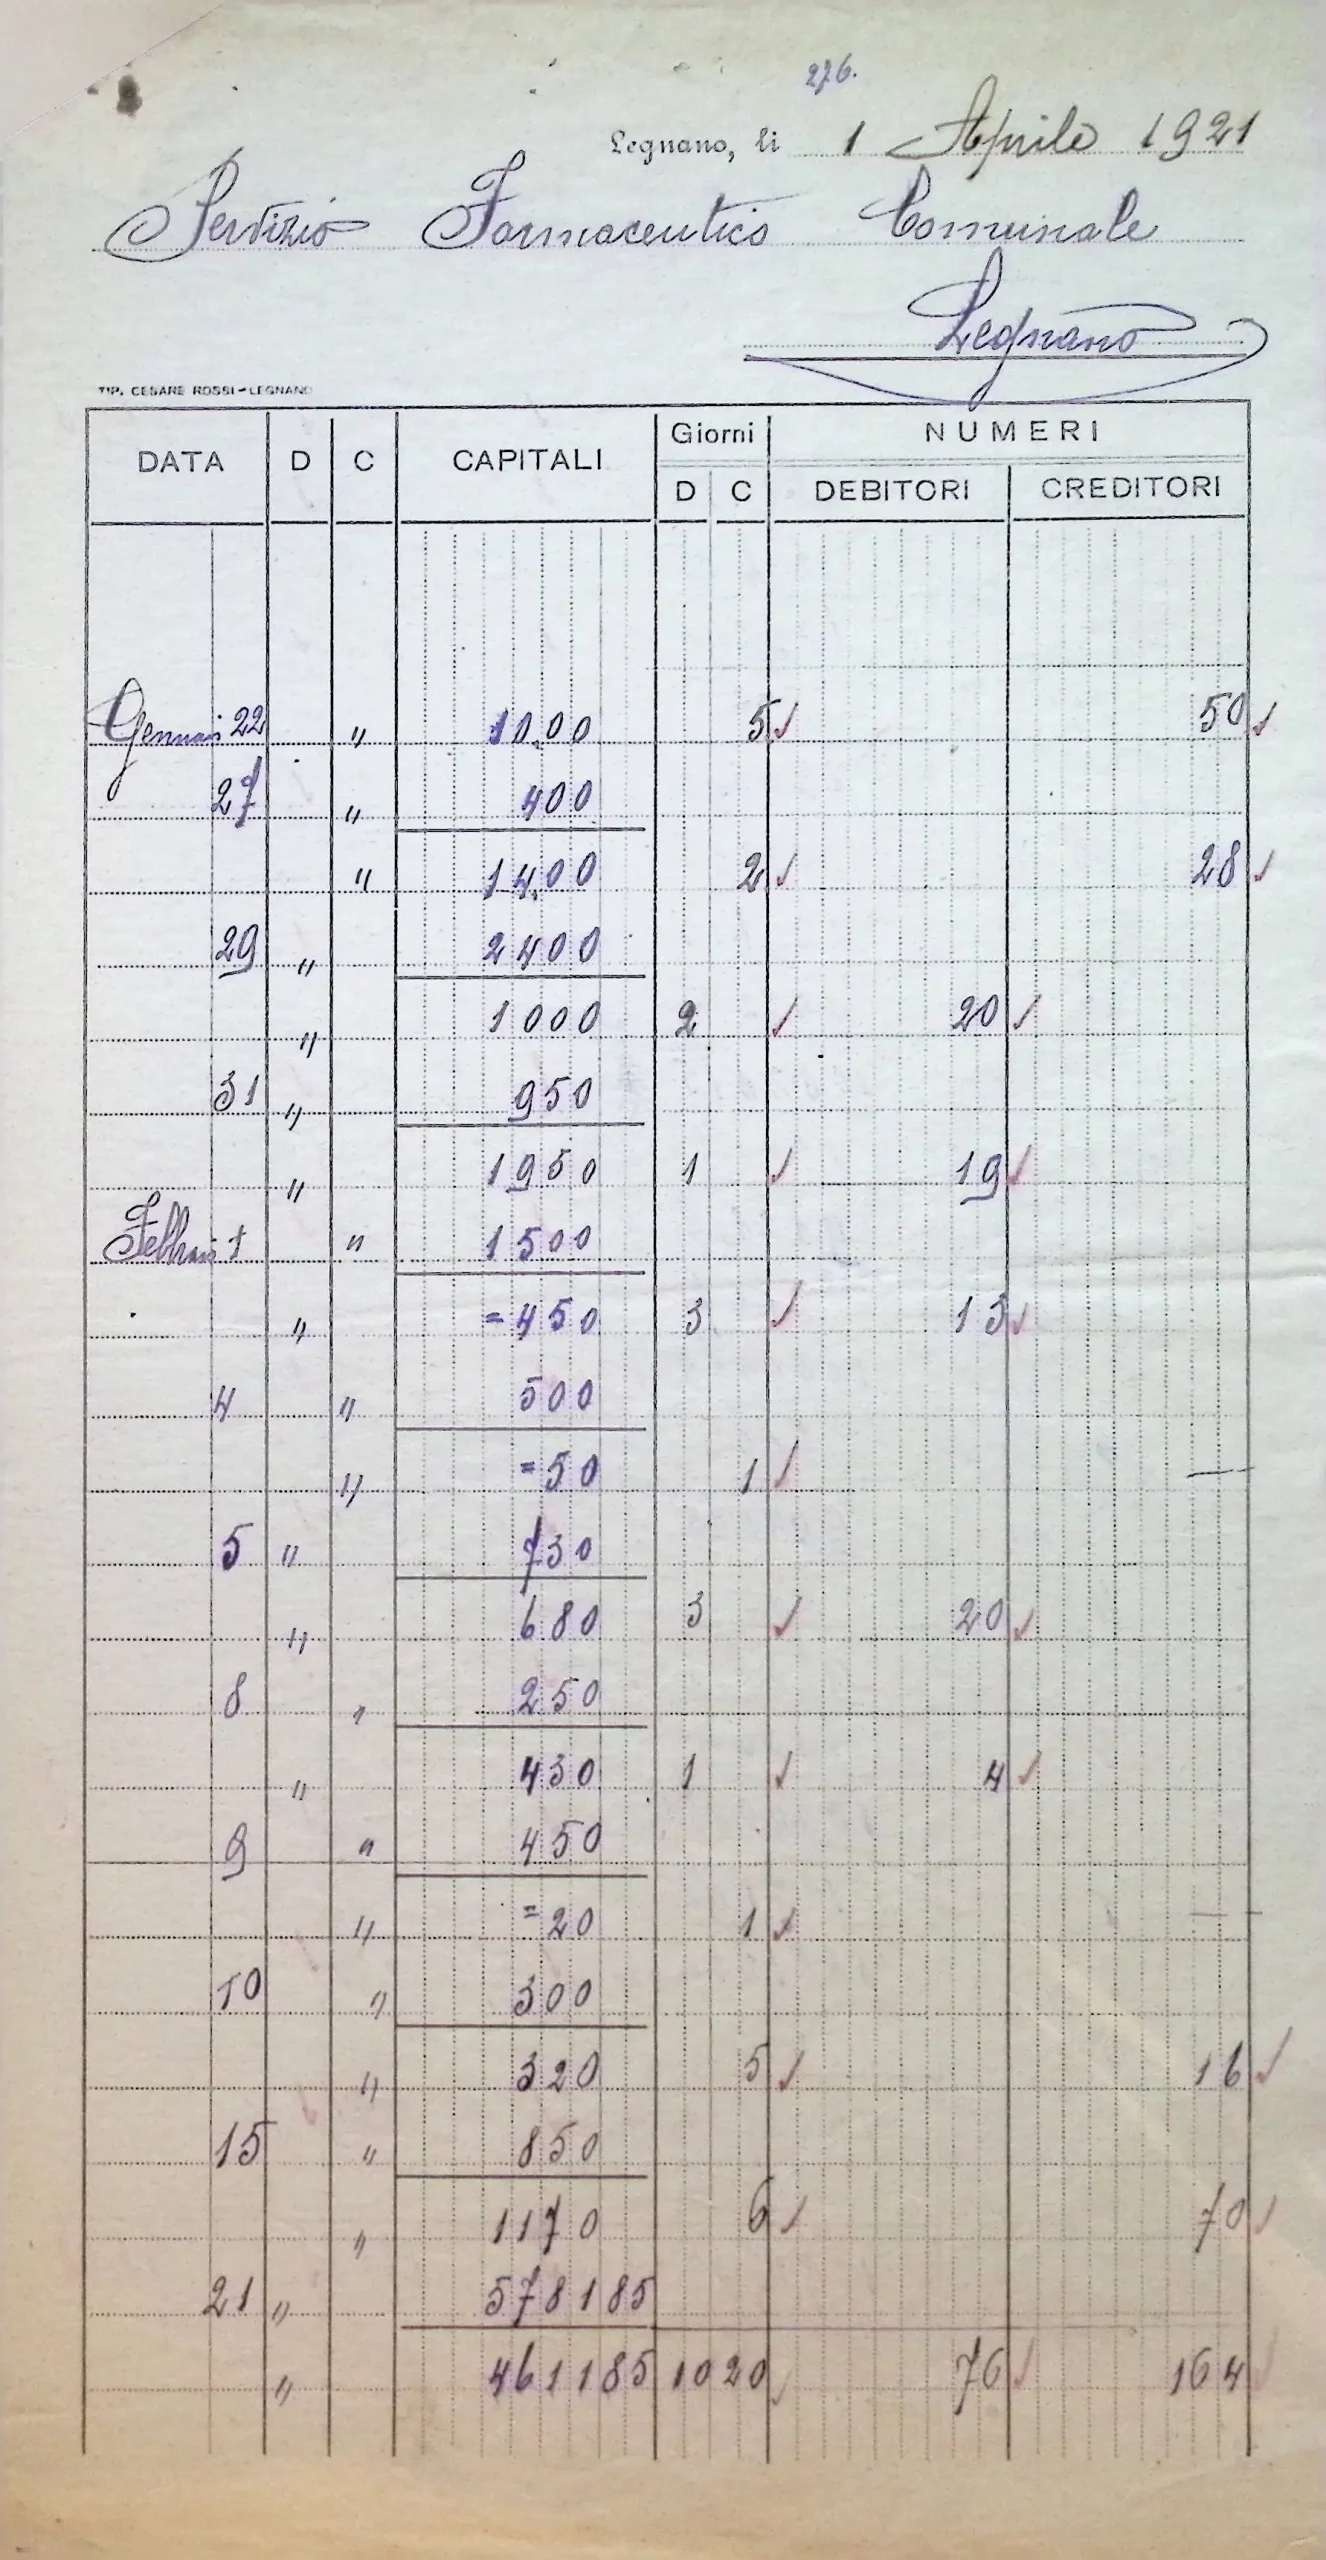 276.
Legnano, li 1 Aprile 1921
Servizio Farmaceutico Comunale
Legnano
TIP. CESARE ROSSI - LEGNANO
DATA D C CAPITALI Giorni NUMERI
D C DEBITORI CREDITORI
Gennaio 22 " 10.00 5 ✓ 50 ✓
27 " 400
" 14.00 2 ✓ 28 ✓
29 " 2400
" 1000 2 ✓ 20 ✓
31 " 950
" 1950 1 ✓ 19 ✓
Febbraio 1 " 1500
" =450 3 ✓ 13 ✓
4 " 500
" =50 1 ✓ —
5 " 730
" 680 3 ✓ 20 ✓
8 " 250
" 430 1 ✓ 4 ✓
9 " 450
" =20 1 ✓ —
10 " 300
" 320 5 ✓ 16 ✓
15 " 850
" 1170 6 ✓ 70 ✓
21 " 5781 85
" 4611 85 10 20 ✓ 76 ✓ 164 ✓